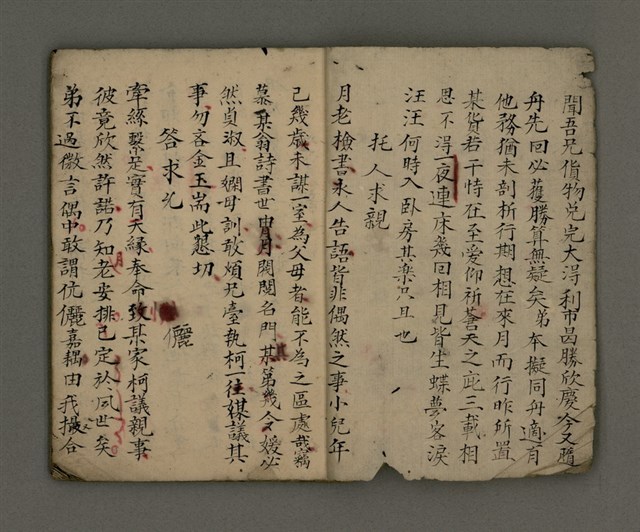 聞吾兄貨物兌完大得利市曷勝欣慶今又贋
舟先回必獲勝算無疑矣弟本擬同舟適有
他務猶未剖析行期想在來月而行昨所置
某貨若干恃在至愛仰祈蒼天之庇三載相
思不得一夜連床幾回相見皆坐蝶夢客淚
汪汪何時入臥房其樂只且也
托人求親
月老檢書氷人告語皆非偶然之事小兒年
已幾歲未謀一室為父母者能不為之區處哉竊
慕某翁詩書世冑閥閱名門其第幾令媛必
然貞淑且嫻母訓敢煩兄臺執柯一往媒議其
事勿吝金玉耑此懇切
答求允
儷
牽絲繫足實有天緣奉命致某家柯議親事
彼竟欣然許諾乃知月老安排已定於夙世矣
弟不過微言偶中敢謂伉儷嘉耦由我撮合